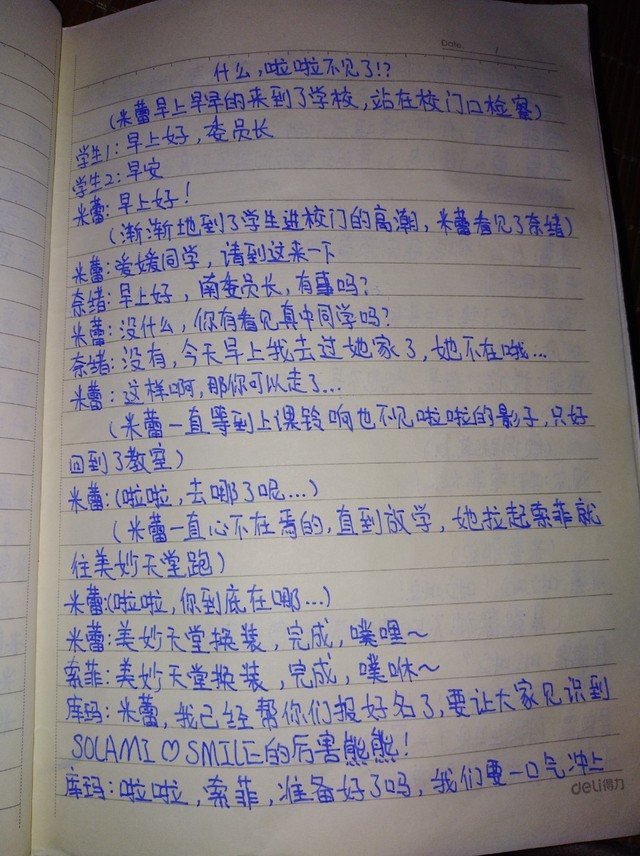 Date.
什么,啦啦不见了!?
(米蕾早上早早的来到了学校,站在校门口检察)
学生1:早上好,委员长
学生2:早安
米蕾:早上好!
(渐渐地到了学生进校门的高潮,米蕾看见了奈绪)
米蕾:媛媛同学,请到这来一下
奈绪:早上好,南委员长,有事吗?
米蕾:没什么,你有看见真中同学吗?
奈绪:没有,今天早上我去过她家了,她不在哦...
米蕾:这样啊,那你可以走了...
(米蕾一直等到上课铃响也不见啦啦的影子,只好
回到了教室)
米蕾:(啦啦,去哪了呢...)
(米蕾一直心不在焉的,直到放学,她拉起索菲就
往美妙天堂跑)
米蕾:(啦啦,你到底在哪...)
米蕾:美妙天堂换装,完成,噗哩~
索菲:美妙天堂换装,完成,噗咻~
库玛:米蕾,我已经帮你们报好名了,要让大家见识到
SOLAMI♡SMILE的厉害熊熊!
库玛:啦啦,索菲,准备好了吗,我们要一口气冲上
deli得力